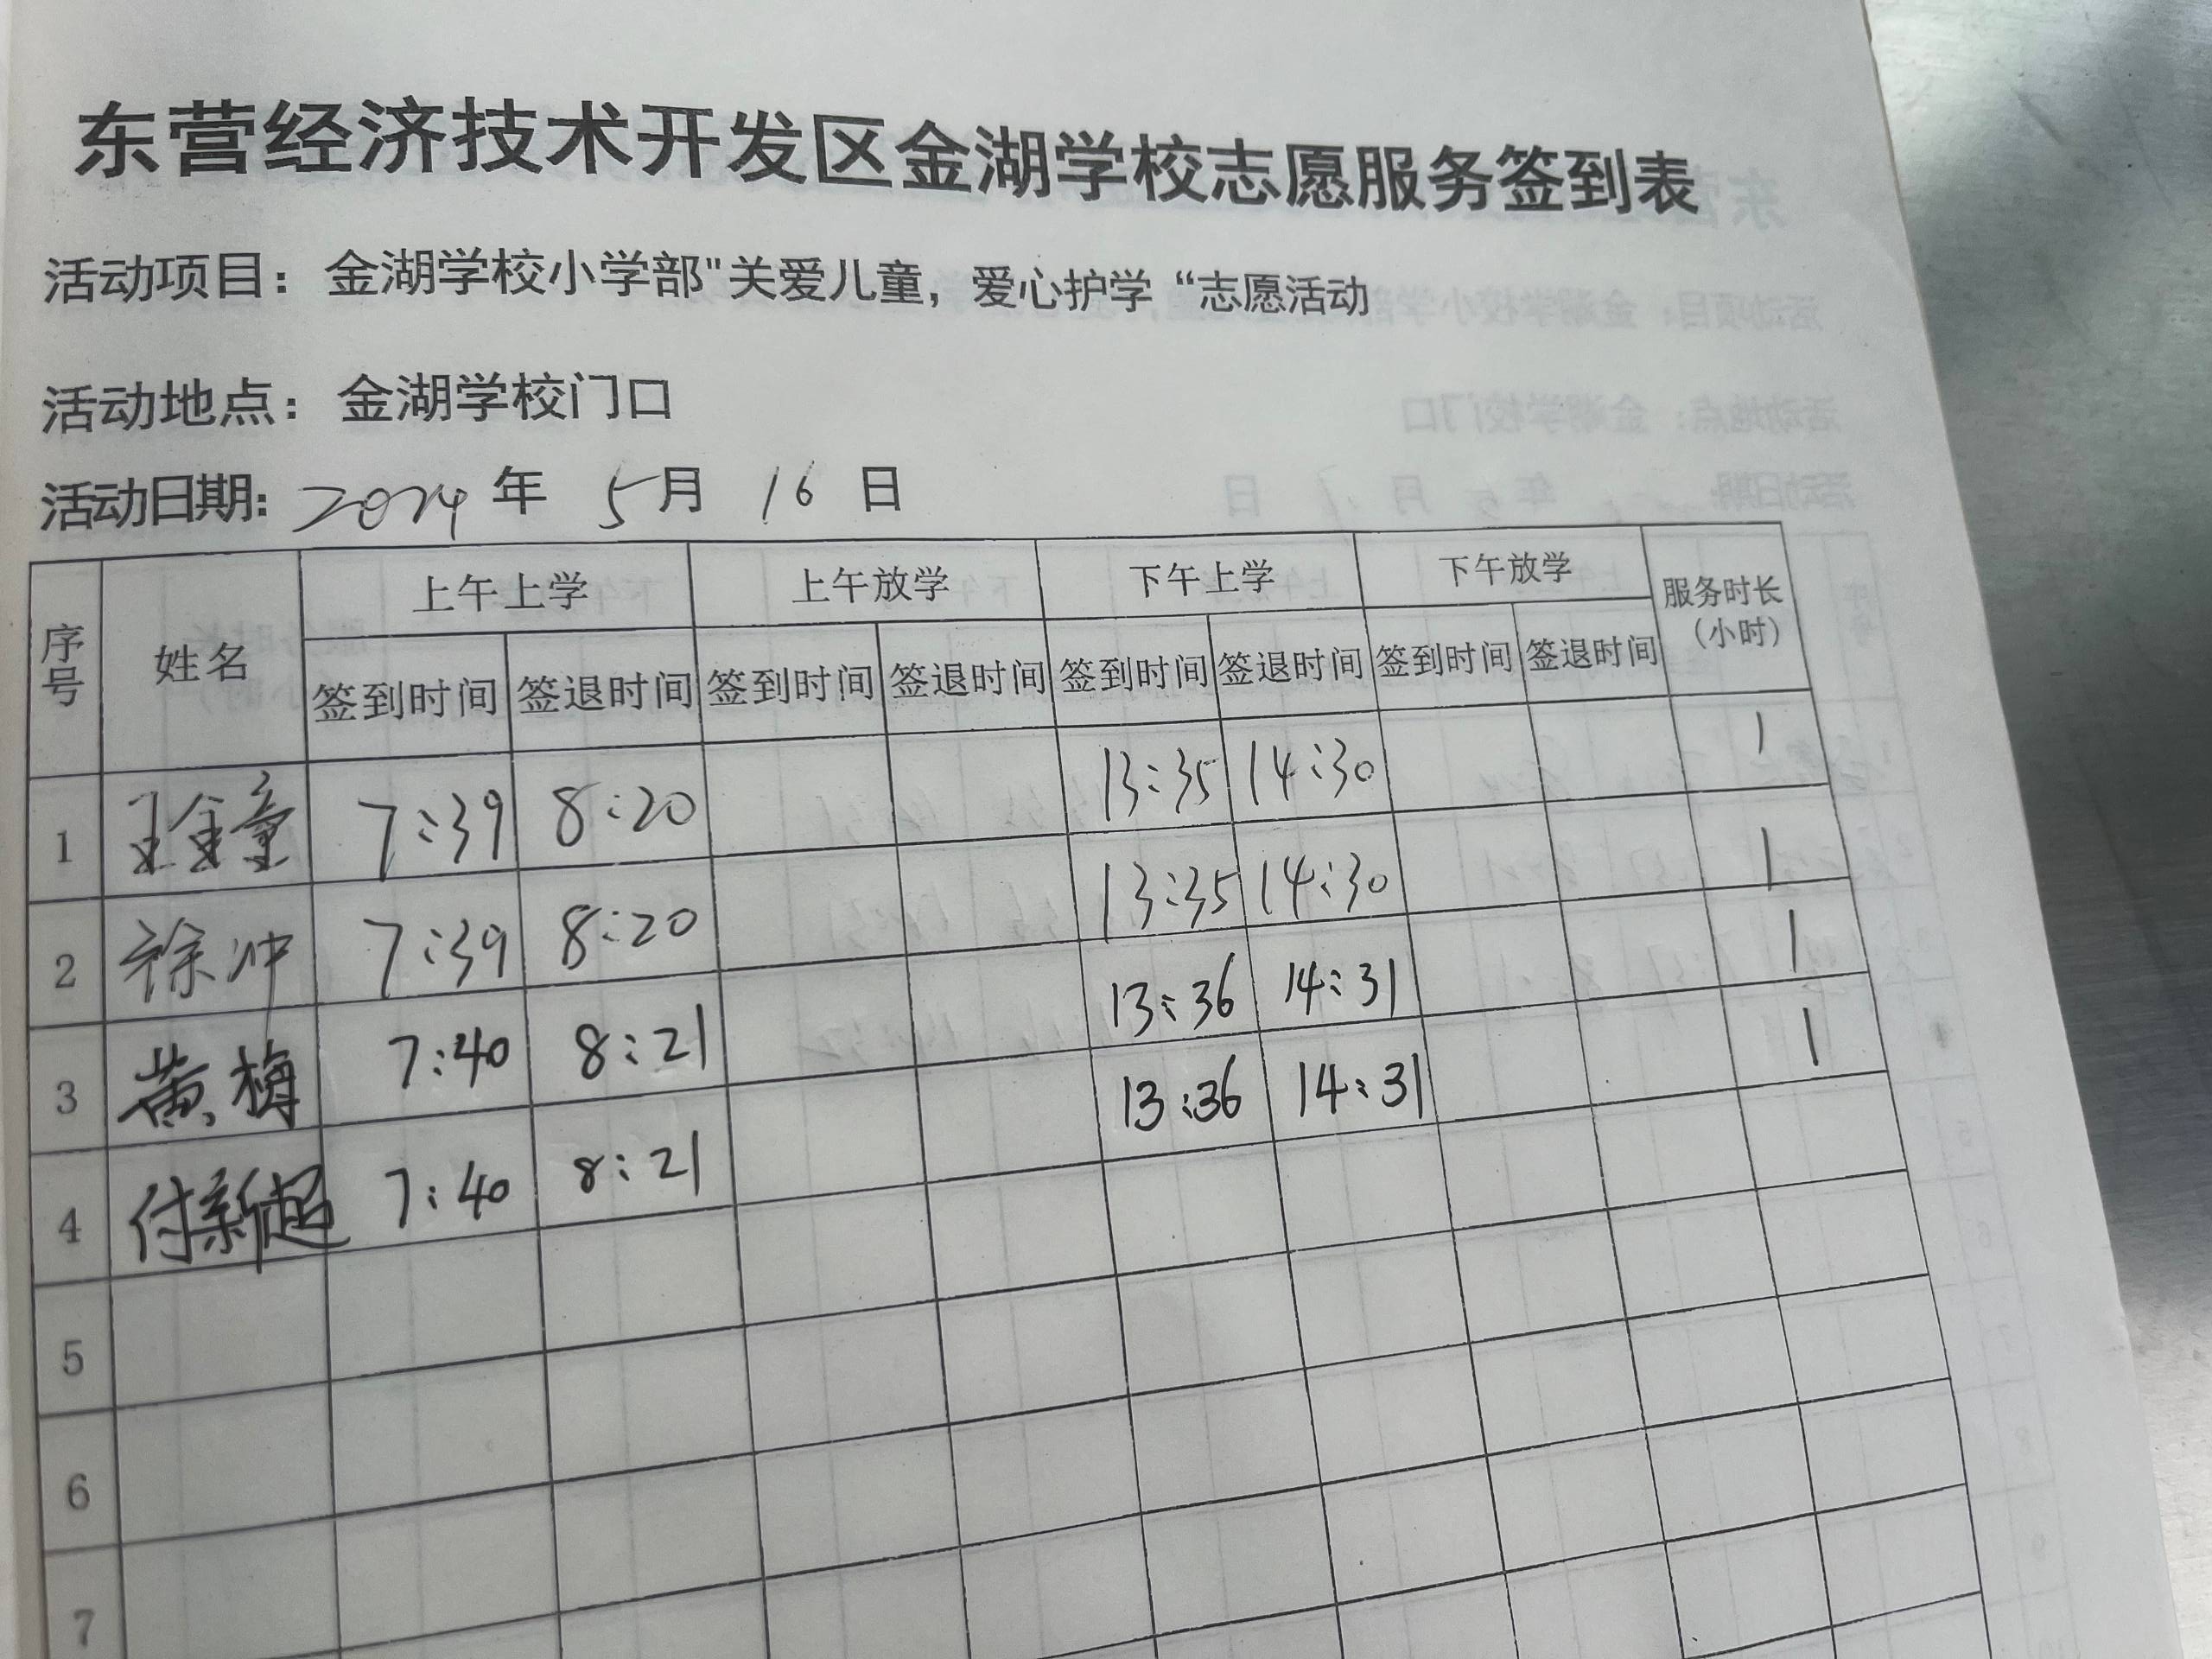 东营经济技术开发区金湖学校志愿服务签到表
活动项目：金湖学校小学部"关爱儿童，爱心护学“志愿活动
活动地点：金湖学校门口
活动日期：2024 年 5 月 16 日
序号 姓名 上午上学 上午放学 下午上学 下午放学 服务时长（小时）
签到时间 签退时间 签到时间 签退时间 签到时间 签退时间 签到时间 签退时间
1 7:39 8:20 13:35 14:30 1
2 徐冲 7:39 8:20 13:35 14:30 1
3 黄梅 7:40 8:21 13:36 14:31 1
4 付新超 7:40 8:21 13:36 14:31 1
5
6
7